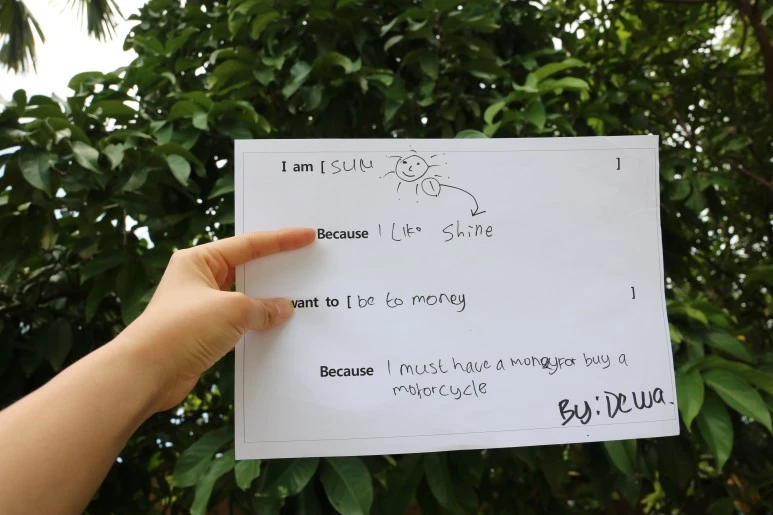 I am [ SUN ]
Because I Like Shine
want to [ be to money ]
Because I must have a money for buy a
motorcycle
By: Dewa.